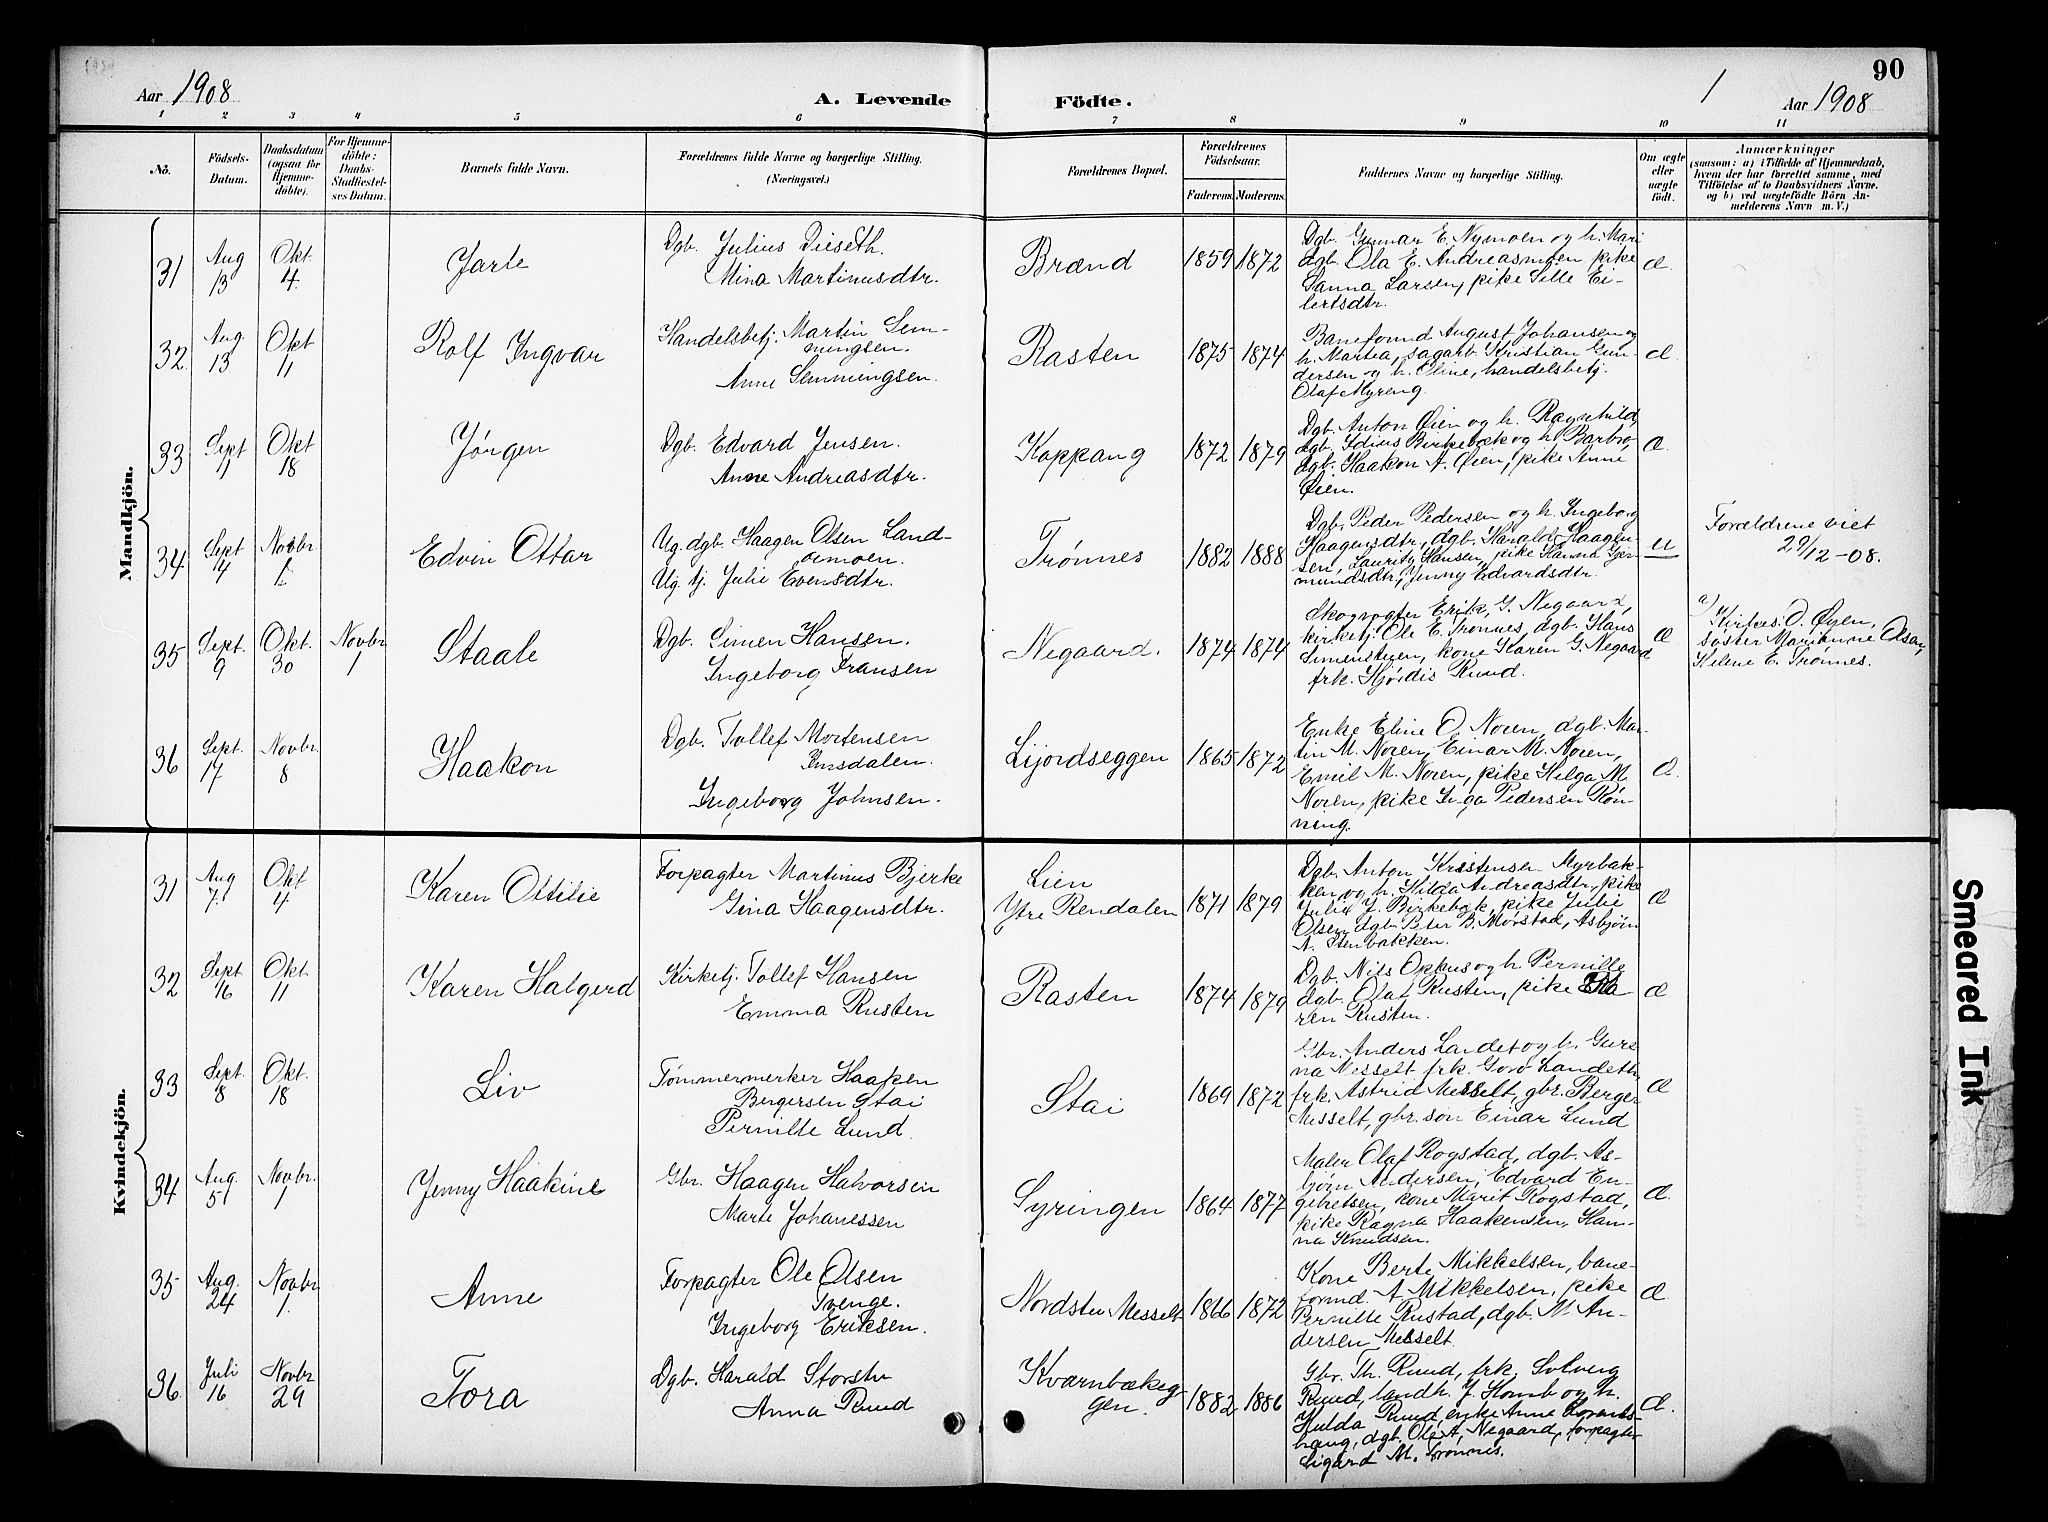 90
Aar 1908
A. Levende
Födte.
1
Aar 1908
1 2 3 4 5 6 7 8 9 10 11
No.
Födsels-
Datum.
Daabsdatum
(ogsaa for
Hjemme-
döbte).
For Hjemme-
döbte:
Daabs-
Stadfæstel-
ses Datum.
Barnets fulde Navn.
Forældrenes fulde Navne og borgerlige Stilling.
(Næringsvei.)
Forældrenes Bopæl.
Forældrenes
Födselsaar.
Faderens. Moderens.
Faddernes Navne og borgerlige Stilling.
Om ægte
eller
uægte
födt.
Anmærkninger
(saasom: a) i Tilfælde af Hjemmedaab,
hvem der har forrettet samme, med
Tilföielse af to Daabsvidners Navne,
og b) ved uægtefödte Börn An-
melderens Navn m. V.)
Mandkjön.
31
Aug
13
Okt.
4.
Jarle
Dgb. Julius Dieseth.
Mina Martinusdtr.
Brænd
1859 1872
Dgb. Gunnar E. Nymoen og h. Mari
dgb. Ola E. Andreasmoen pike
Sanna Larsen, pike Sille Ei-
lertsdtr.
Æ.
32
Aug.
13
Okt
11
Rolf Ingvar
Handelsbetj. Martin Sem-
mingsen.
Anne Semmingsen.
Rasten
1875 1874
Baneformd August Johansen og
h. Martea, sagarb. Kristian Gun-
dersen og h. Oline, handelsbetj.
Olaf Myreng
Æ
33
Sept
1
Okt
18
Jörgen
Dgb. Edvard Jensen.
Anne Andreasdtr.
Koppang
1872 1879
Dgb. Anton Öien og h. Ragnhild,
dgb. Idius Birkebæk og h. Barbro,
dgb. Haakon A. Öien, pike Anne
Öien.
Æ.
34
Sept
4
Novbr
1.
Edvin Ottar
Ug. dgb. Haagen Olsen Land-
oemoen.
Ug. tj. Julie Evensdtr.
Trønnes
1882 1888
Dgb. Peder Pedersen og h. Ingeborg
Haagensdtr, dgb. Harald Haagen-
sen, Lauritz Hansen, pike Hanna Gjer-
mundsdtr, Jenny Edvardsdtr.
U
Forældrene viet
29/12-08.
35
Sept.
9
Okt.
30
Novbr
1
Staale
Dgb. Simen Hansen.
Ingeborg Fransen
Negaard.
1874 1874
Skogvogter Erik G. Negaard,
kirketj. Ole E. Trønnes, dgb. Hans
Simensteien, kone Karen G. Negaard
frk. Hjördis Ruud.
Æ
a)
Kirkes. O. Øyen,
søster Marianne Olsen,
Helene E. Trønnes.
36
Sept.
17
Novbr.
8
Haakon
Dgb. Tollef Mortensen
Ingeborg Johnsen.
Lijordseggen
1865 1872
Enke Eline O. Noren, dgb. Mar-
tin M. Noren, Einar M. Noren,
Emil M. Noren, pike Helga M.
Noren, pike Inga Pedersen Røn-
ning.
Æ.
Kvindekjön.
31
Aug
7.
Okt
4
Karen Ottilie
Forpagter Martinus Bjerke
Gina Haagensdtr.
Lien
Ytre Rendalen
1871 1879
Dgb. Anton Kristensen Myrbak-
ken og h. Hilda Andreasdtr, pike
Julie J. Birkebæk, pike Julie
Olsen, dgb. Peter B. Mørstad, Asbjörn
A. Stenbakken.
Æ
32
Sept
16
Okt.
11
Karen Halgerd
Kirketj. Tollef Hansen
Emma Rusten
Rasten
1874 1879
Dgb. Nils Ophus og h. Pernille
dgb. Olaf Rusten, pike Ka-
ren Rusten.
Æ
33
Sept.
8
Okt.
18
Liv
Tömmermerker Haaken
Bergersen Stai
Pernille Lund.
Stai
1869 1872
Gbr. Anders Landet og h. Guri
na Messelt frk. Goro Landeth,
frk. Astrid Messelt, gbr. Berger
Messelt, gbr. sön Einar Lund
Æ
34
Aug.
5
Novbr.
1
Jenny Haakine
Gbr. Haagen Halvorsen
Marte Johanessen
Syringen
1864 1877
Maler Olaf Rogstad, dgb. As-
bjørn Andersen, Edvard En-
gebretsen, kone Marit Rogstad,
pike Ragna Haakensen, Han-
na Knudsen.
Æ.
35
Aug.
24
Novbr
1.
Anne
Forpagter Ole Olsen
Trenge.
Ingeborg Eriksen.
Nordstu Messelt
1866 1872
Kone Berte Mikkelsen, bane-
formd. A Mikkelsen, pike
Pernille Rustad, dgb. M. An-
dersen Messelt
Æ.
36
Juli
16
Novbr
29
Tora
Dgb. Harald Storstu
Anna Ruud
Kværnbækeg-
gen.
1882 1886
Gbr. Th. Ruud, frk. Solveig
Ruud, landh. J. Homb og h.
Hulda Ruud, enke Anne
haug, dgb. Ole A. Negaard, forpagter
Sigard M. Trønnes.
Æ.
Smeared Ink